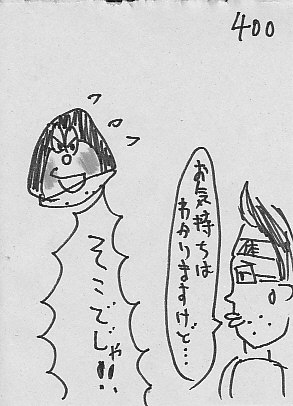 400
お気持ちは
わかりますけど…
そこでじゃ!!